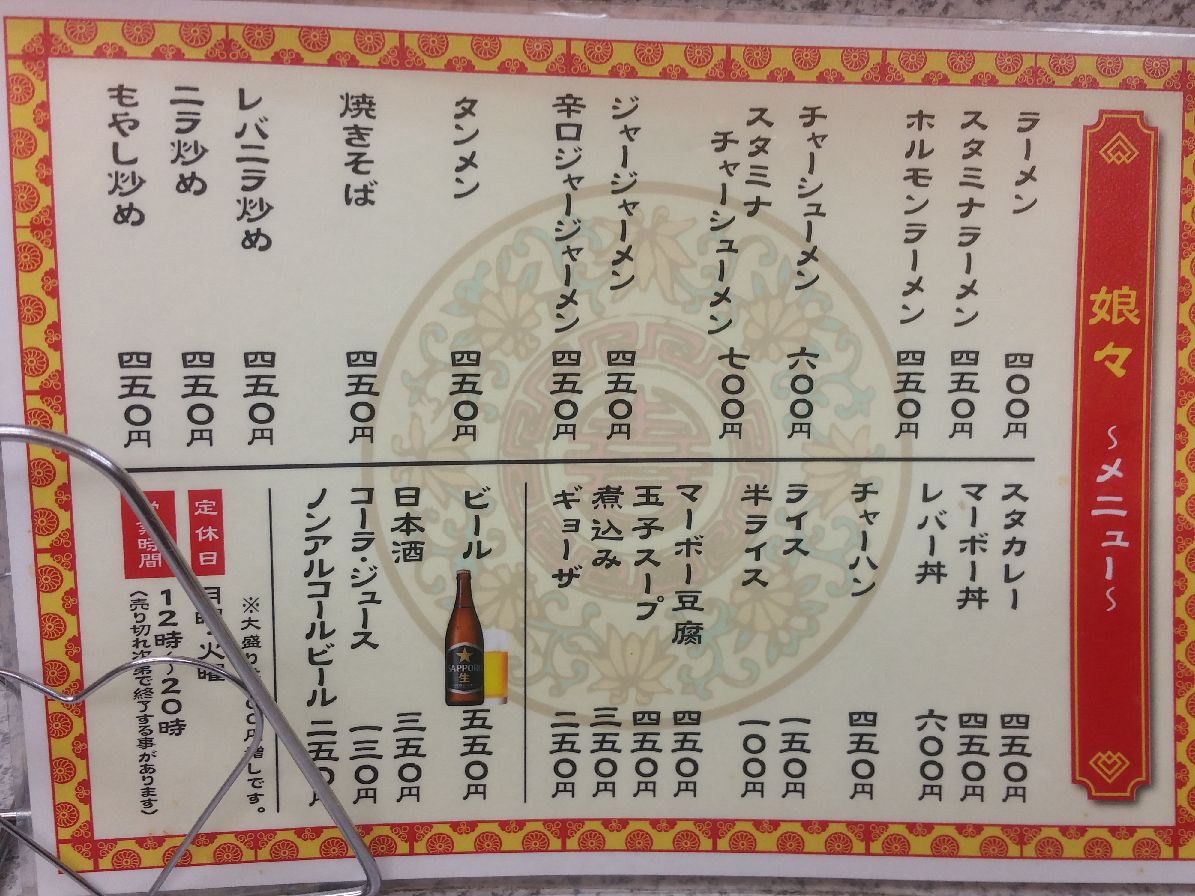 娘々 ～メニュー～
ラーメン 四〇〇円
スタミナラーメン 四五〇円
ホルモンラーメン 四五〇円
チャーシューメン 六〇〇円
スタミナ
チャーシューメン 七〇〇円
ジャージャーメン 四五〇円
辛口ジャージャーメン 四五〇円
タンメン 四五〇円
焼きそば 四五〇円
レバニラ炒め 四五〇円
ニラ炒め 四五〇円
もやし炒め 四五〇円
スタカレー 四五〇円
マーボー丼 四五〇円
レバー丼 六〇〇円
チャーハン 四五〇円
ライス 一五〇円
半ライス 一〇〇円
マーボー豆腐 四五〇円
玉子スープ 四五〇円
煮込み 三五〇円
ギョーザ 二五〇円
ビール 五五〇円
SAPPORO
生
日本酒 三五〇円
コーラ・ジュース 一三〇円
ノンアルコールビール 二五〇円
※大盛り 〇〇円増しです。
定休日 月曜・火曜
営業時間 12時～20時
（売り切れ次第で終了する事があります）